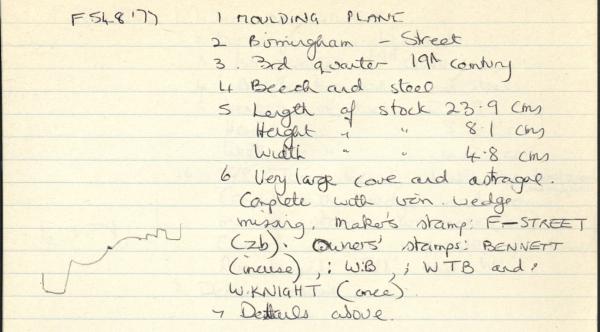 F548'77
1 MOULDING PLANE
2 Birmingham - Street
3. 3rd quarter 19th century
4 Beech and steel
5 Length of stock 23.9 cms
Height " " 8.1 cms
Width " " 4.8 cms
6 Very large cove and astragal.
Complete with iron. Wedge
missing. Maker's stamp: F-STREET
(zb). Owners' stamps: BENNETT
(incuse), ; W.B, ; WTB and ;
W.KNIGHT (once).
7 Details above.